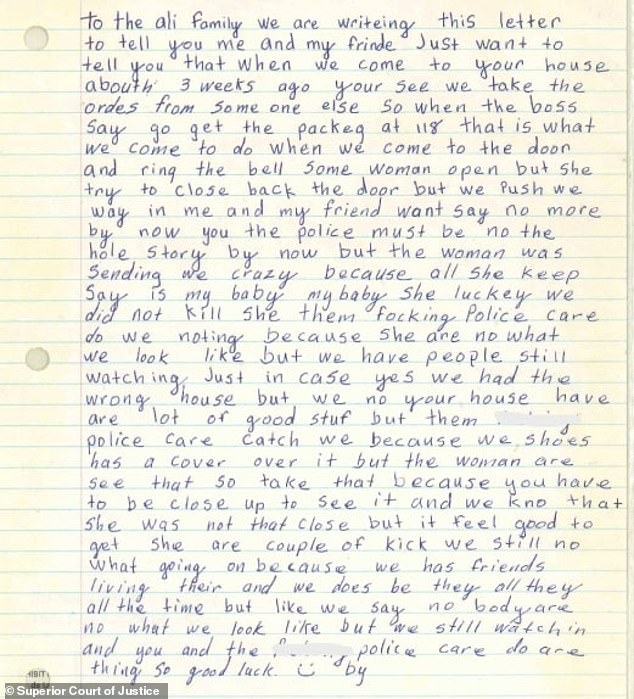 to the ali family we are writeing this letter
to tell you me and my frinde Just want to
tell you that when we come to your house
abouth 3 weeks ago your see we take the
ordes from some one else so when the boss
say go get the packeg at 118 that is what
we come to do when we come to the door
and ring the bell some woman open but she
try to close back the door but we push we
way in me and my friend want say no more
by now you the police must be no the
hole story by now but the woman was
sending we crazy because all she keep
say is my baby my baby she luckey we
did not kill she them focking police care
do we noting because she are no what
we look like but we have people still
watching Just in case yes we had the
wrong house but we no your house have
are lot of good stuf but them
police care catch we because we shoes
has a cover over it but the woman are
see that so take that because you have
to be close up to see it and we kno that
she was not that close but it feel good to
get she are couple of kick we still no
what going on because we has friends
living their and we does be they all they
all the time but like we say no body are
no what we look like but we still watchin
and you and the police care do are
thing so good luck. by
© Superior Court of Justice